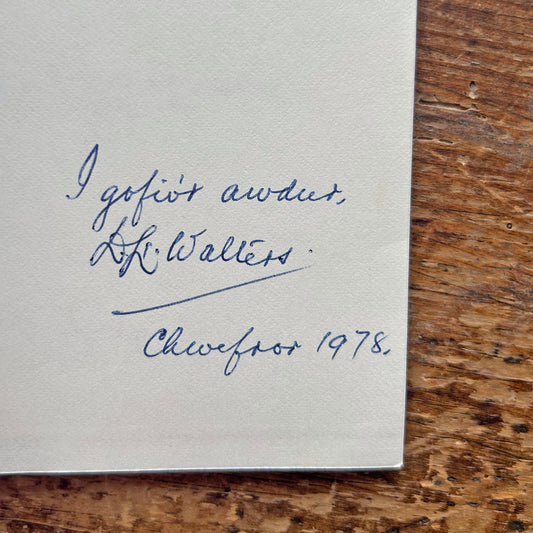 I gofio'r awdur,
D. L. Walters.
Chwefror 1978.